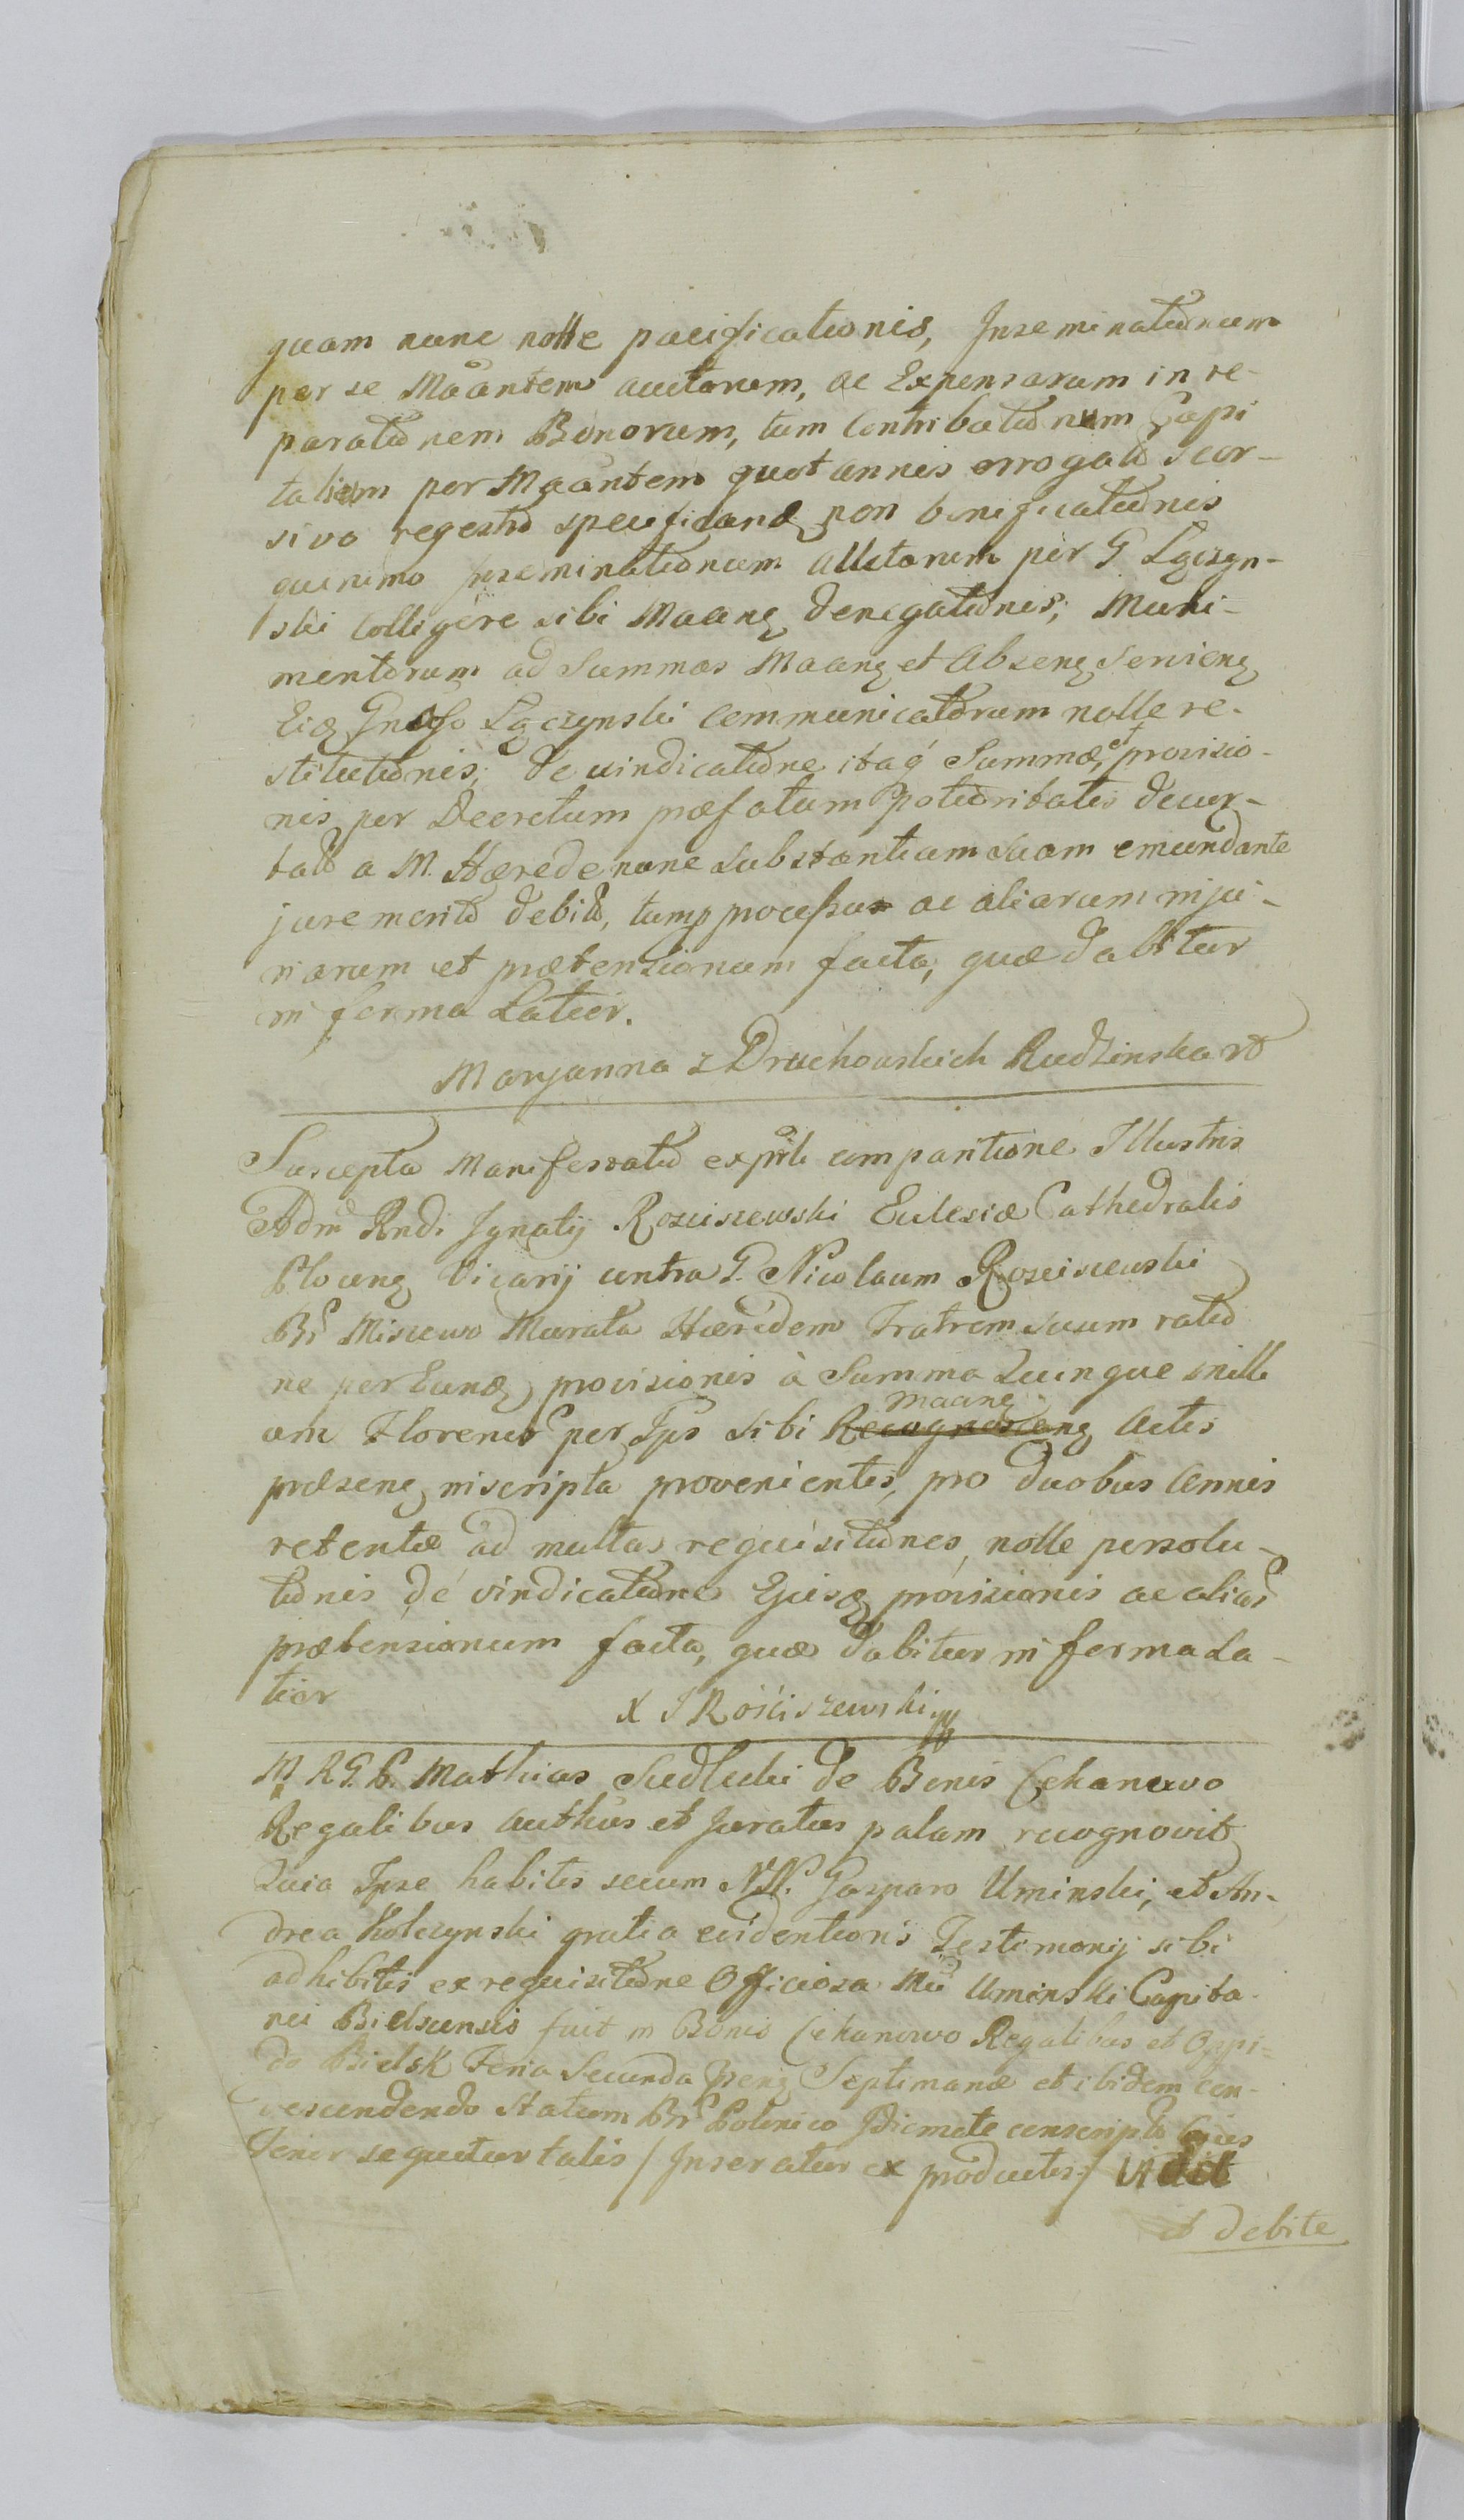 quam nunc nolle pacificationis, Inseminationum
per se Maãntem auctorum, ac Expensarum in re-
parationem Bonorum, tum Contributionum Capi
talium per Maãntem quotannis errogato scor-
sivo regestro specificand non bonificationis
quinimo Inseminationum allatorum per G Lączyn-
ski Colligere sibi Maang denegationis; Muni-
mentorum ad Summas Maang et Absenq servieng
Lączynski Communicatorum nolle re-
stitutionis; de vindicatione itaq Summæ et provisio-
nis per Decretum præfatum potioritatis decur-
tato a M. Hærede nunc Substantiam suam emundante
jure merito debito, tumq processus ac aliarum inju-
riarum et prætensionum facta, quæ dabitur
in forma Latior.
Maryanna z Drochowskich Rudzinska
Suscepta Manifestatio compartione Illustris
Adm Rndi Ignatij Rosciszewski Eclesiæ Cathedralis
Plocenq Vicarij contra G. Nicolaum Rosciszewski
Br Miszewo Murata Hæredem Fratrem suum ratio
ne provisionis à Summa Quinque mille
um Florenor per Ips sibi Recognosceng Maang Actis
præsenq inscripta provenientis, pro duobus Annis
retentæ ad multas requisitiones, nolle persolu-
tionis de vindicatione Ejusq provisionis ac aliar
prætensionum facta, quæ dabitur in forma La-
tior
X J Rościszewski
M R G. P. Mathias Siedlecki de Bonis Cekanowo
Regalibus Authus et Juratus palam recognovit
Quia Ipse habitis secum NN. Gasparo Uminski, et An-
drea Kolczynski gratia evidentioris Testimonij sibi
adhibitis ex requisitione Officiosa Uminski Capita-
nei Bielscensis fuit in Bonis Cekanowo Regalibus et Oppi-
do Bielsk Feria Secunda Septimanæ et ibidem con-
descendendo Statum Br Polonico Idiomate conscripto Cujus
Tenor sequitur talis / Inseratur ex productis / Vidit
et debite